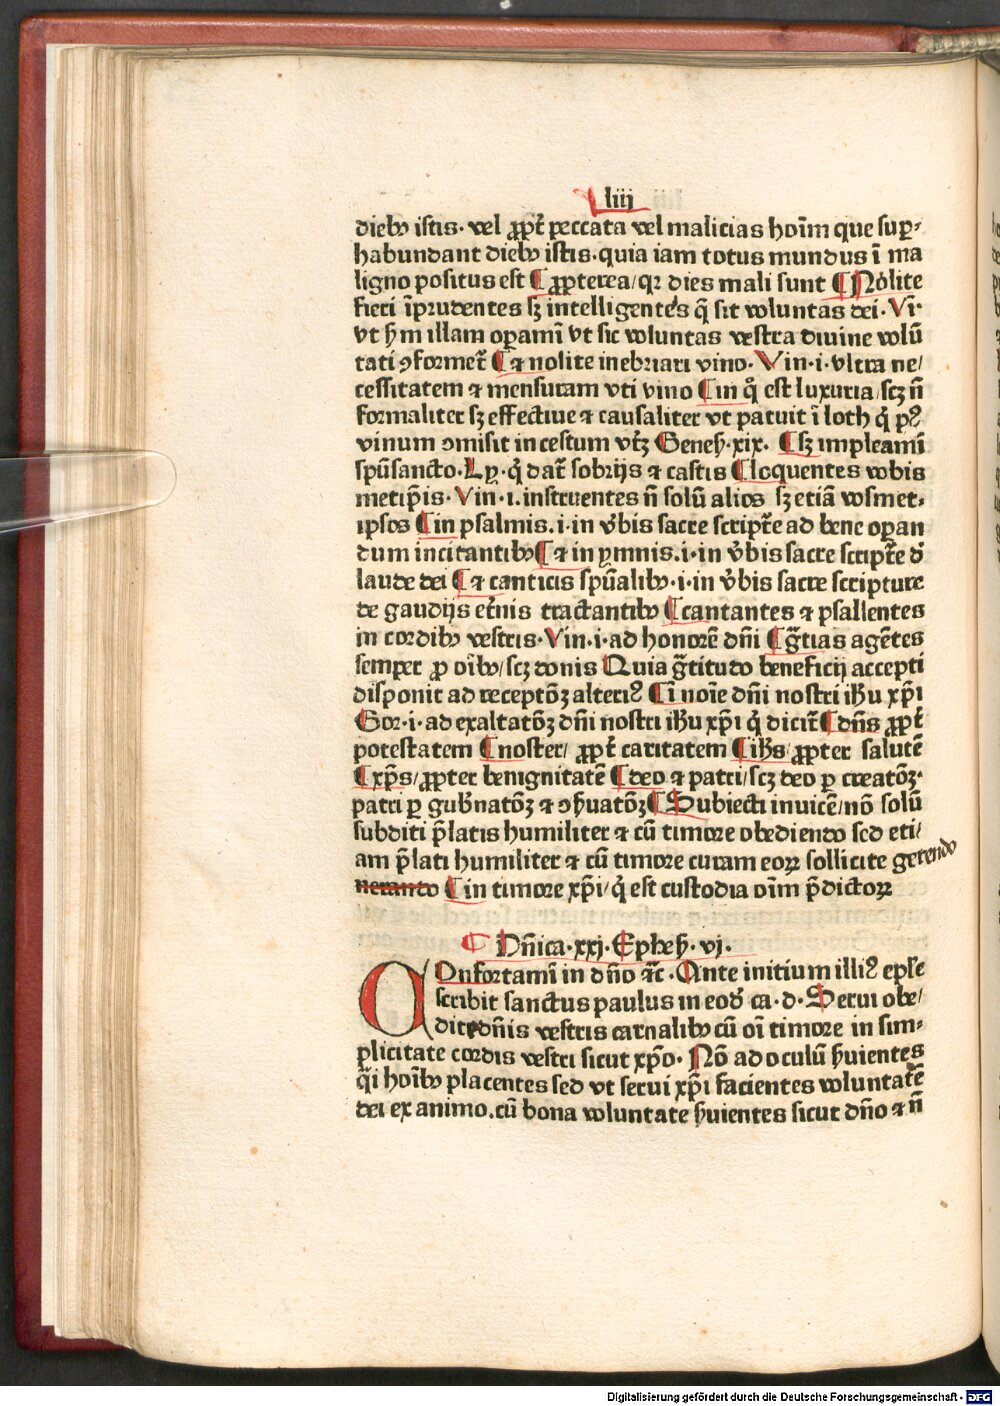 liiij
dieb⁹ istis. vel ꝓpt̄ peccata vel malicias hoīm que suꝑ⸗
habundant dieb⁹ istis. quia iam totus mundus ī ma
ligno positus est ¶ ꝓpterea/ qꝛ dies mali sunt ¶ Nolite
fieri īprudentes sꝫ intelligentes q̄ sit voluntas dei. Vī.
vt ẜm illam oꝑamī vt sic voluntas vestra diuine volū
tati ꝯformet̄ ¶ ⁊ nolite inebriari vino. Vin. i. vltra ne/
cessitatem ⁊ mensuram vti vino ¶ in q̊ est luxuria/ scꝫ n̄
formaliter sꝫ effectiue ⁊ causaliter vt patuit ī loth q̇ pꝰ
vinum ꝯmisit incestum vt̄ꝫ Geneẜ. xix. ¶ sꝫ impleamī
spūsancto. Ly. q̇ dat̄ sobrijs ⁊ castis ¶ loquentes vobis
metip̄is. Vin. i. instruentes n̄ solū alios sꝫ etiā vosmet⸗
ipsos ¶ in psalmis. i. in v̄bis sacre script̄e ad bene oꝑan
dum incitantib⁹ ¶ ⁊ in ymnis. i. in v̄bis sacre script̄e d̄
laude dei ¶ ⁊ canticis spūalib⁹. i. in v̄bis sacre scripture
de gaudijs et̄nis tractantib⁹ ¶ cantantes ⁊ psallentes
in cordib⁹ vestris. Vin. i. ad honorē dn̄i ¶ gr̄tias agētes
semper ꝓ oīb⁹/ scꝫ donis Quia gr̄titudo beneficij accepti
disponit ad receptōꝫ alteriꝰ ¶ ī noīe dn̄i nostri ihū xp̄i
Gor. i. ad exaltatōꝫ dn̄i nostri ihū xp̄i q̇ dicit̄ ¶ dn̄s ꝓpt̄
potestatem ¶ noster/ ꝓpt̄ caritatem ¶ ihs̄/ ꝓpter salutē
¶ xp̄s/ ꝓpter benignitatē ¶ deo ⁊ patri/ scꝫ deo ꝑ creatōꝫ.
patri ꝑ gub̄natōꝫ ⁊ ꝯẜuatōꝫ ¶ Subiecti inuicē/ nō solū
subditi p̄latis humiliter ⁊ cū timore obediendo sed eti/
am p̄lati humiliter ⁊ cū timore curam eoꝝ sollicite gerendo
nerando ¶ in timore xp̄i/ q̇ est custodia oīm p̄dictoꝝ
¶ Dn̄ica. xxj. Epheẜ. vj.
COnfortamī in dn̄o ⁊c̄. Ante initium illiꝰ ep̄le
scribit sanctus paulus in eod̄ ca. d. Serui obe/
dite dn̄is vestris carnalib⁹ cū oī timore in sim⸗
plicitate cordis vestri sicut xp̄o. Nō ad oculū ẜuientes
q̄i hoīb⁹ placentes sed vt serui xp̄i facientes voluntatē
dei ex animo. cū bona voluntate ẜuientes sicut dn̄o ⁊ n̄
Digitalisierung gefördert durch die Deutsche Forschungsgemeinschaft - DFG